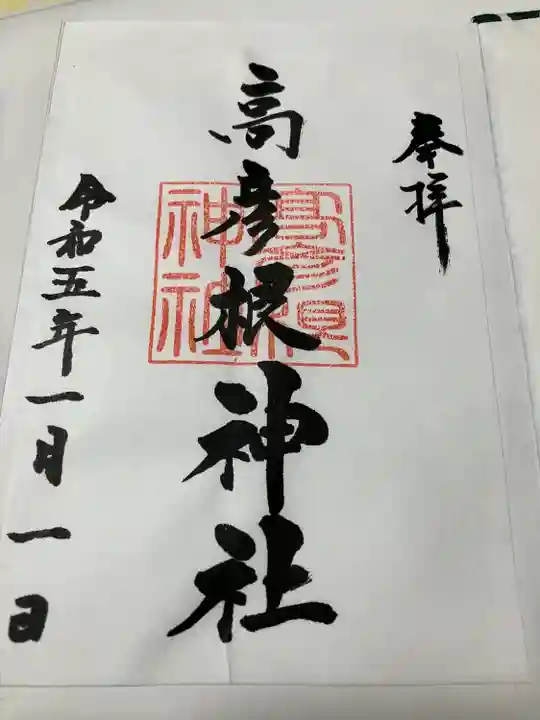 奉拝
高彦根神社
高彦根神社
令和五年一月一日